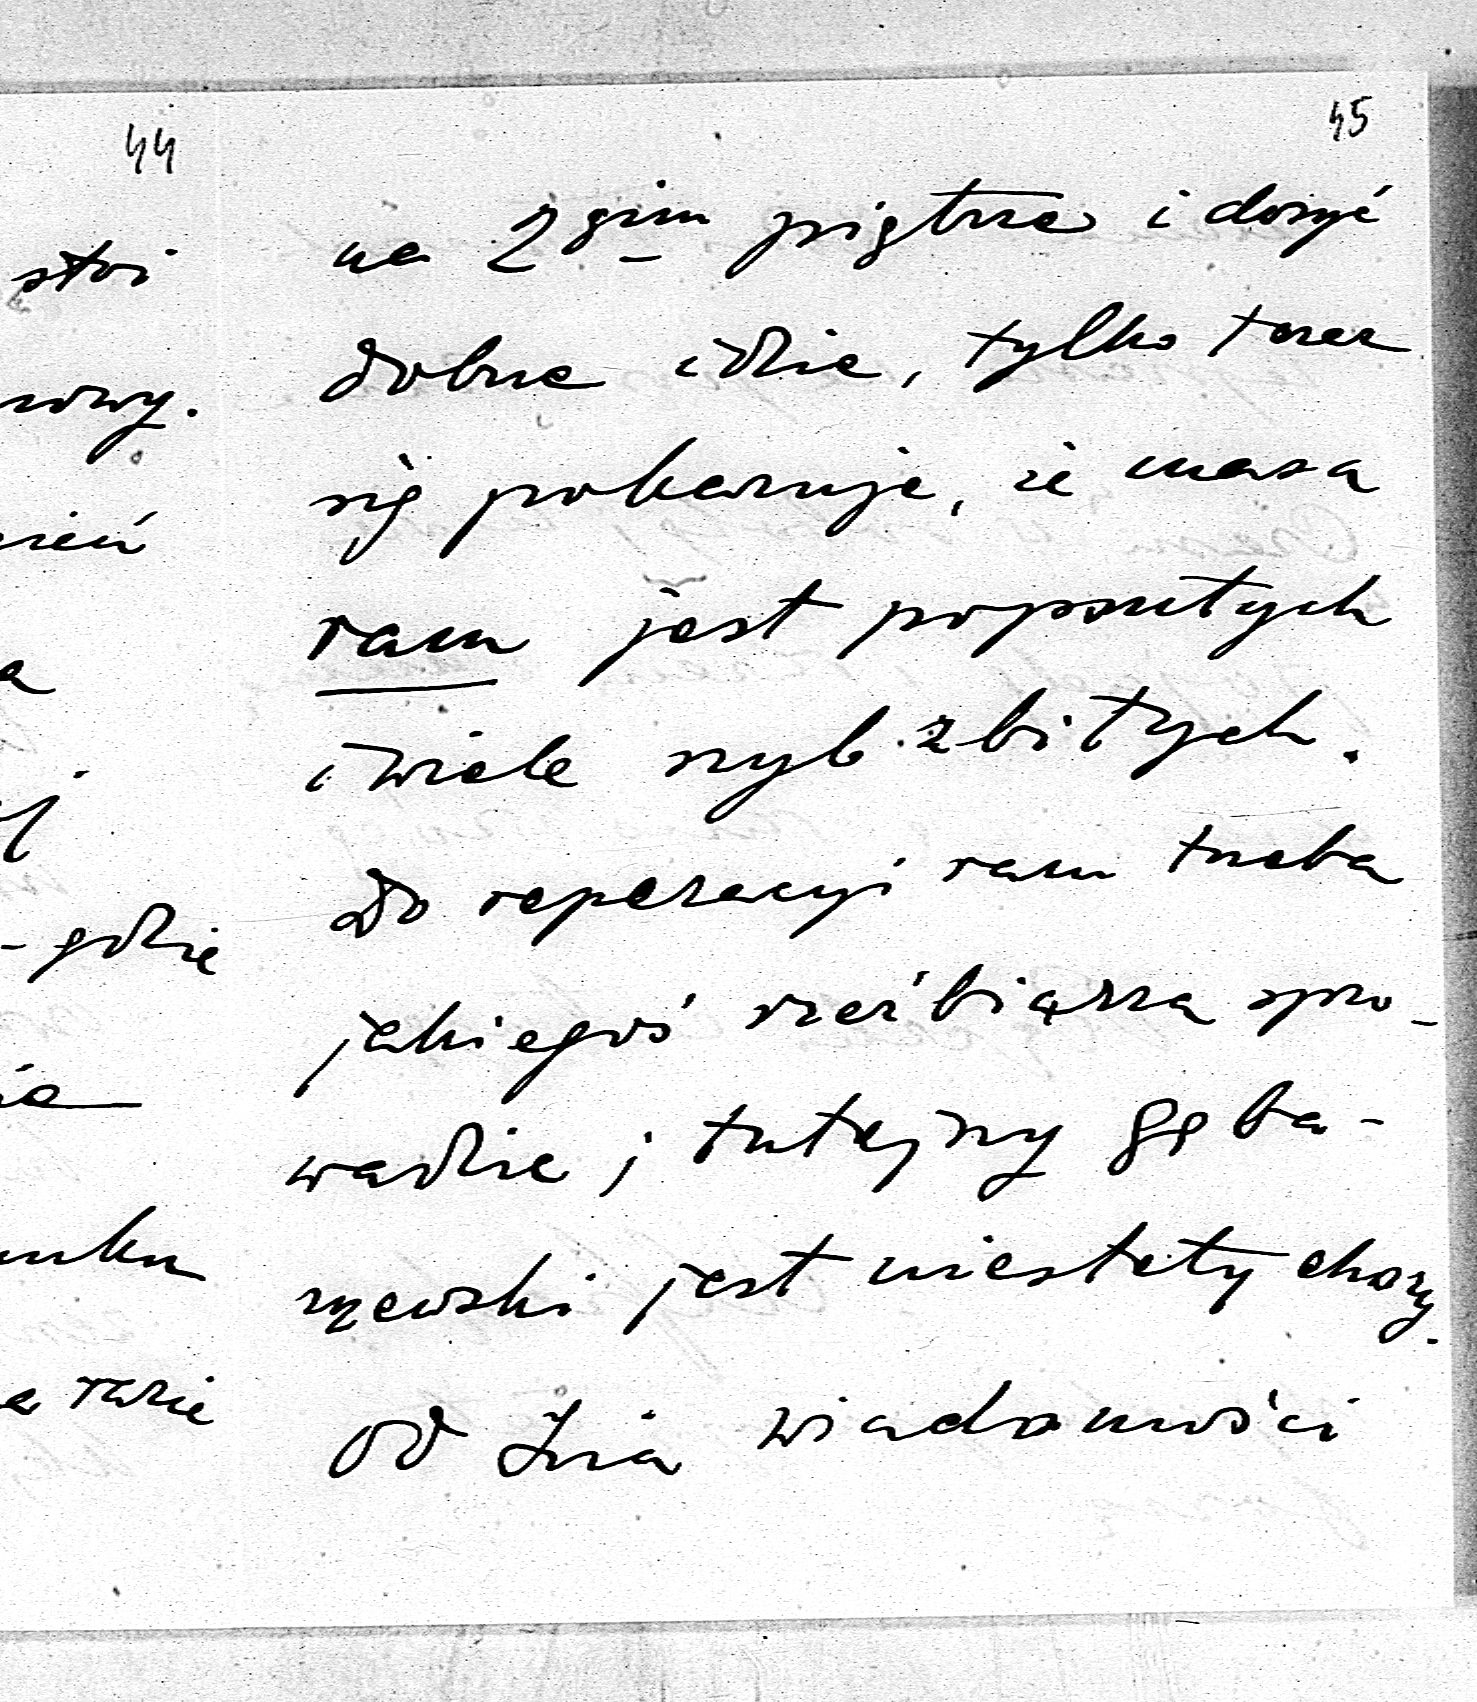 44
stoi
nowy.
a
- gdzie
razie
45
na 2gim piętrze i dosyć
dobrze idzie, tylko teraz
się pokazuje, że masa
ram jest popsutych
i wiele szyb zbitych.
Do reperacyi ram trzeba
jakiegoś rzeźbiarza spro-
wadzić; tutejszy Gęba-
rzewski jest niestety chory.
Od Inia wiadomości